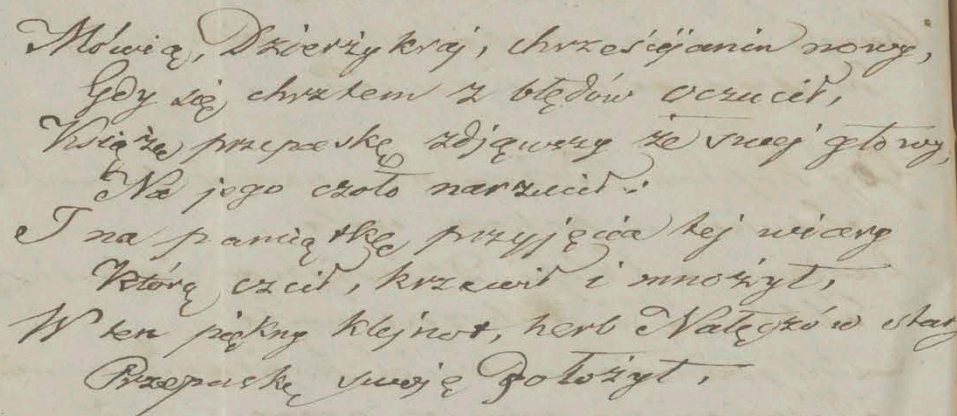 Mówią, Dzierżykraj, chrześcijanin nowy,
Gdy się chrztem z błędów oczucił,
Książe przepaskę zdjąwszy ze swej głowy,
Na jego czoło narzucił:
I na pamiątkę przyjęcia tej wiary
Którą czcił, krzewił i mnożył,
W ten piękny klejnot, herb Nałęczów stary
Przepaskę swoję położył.